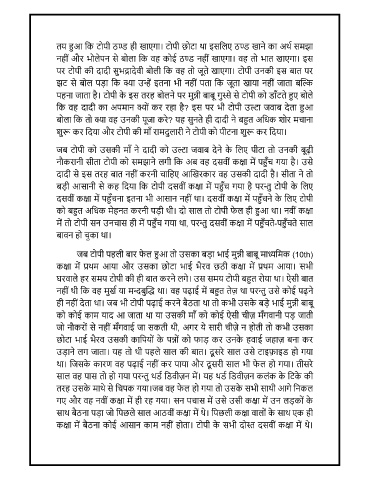 तय हुआ कि टोपी ठण्ड ही खाएगा। टोपी छोटा था इसलिए ठण्ड खाने का अर्थ समझा
नहीं और भोलेपन से बोला कि वह कोई ठण्ड नहीं खाएगा। वह तो भात खाएगा। इस
पर टोपी की दादी सुभद्रादेवी बोली कि वह तो जूते खाएगा। टोपी उनकी इस बात पर
झट से बोल पड़ा कि क्या उन्हें इतना भी नहीं पता कि जूता खाया नहीं जाता बल्कि
पहना जाता है। टोपी के इस तरह बोलने पर मुन्नी बाबू गुस्से से टोपी को डाँटते हुए बोले
कि वह दादी का अपमान क्यों कर रहा है? इस पर भी टोपी उल्टा जवाब देता हुआ
बोला कि तो क्या वह उनकी पूजा करे? यह सुनते ही दादी ने बहुत अधिक शोर मचाना
शुरू कर दिया और टोपी की माँ रामदुलारी ने टोपी को पीटना शुरू कर दिया।
जब टोपी को उसकी माँ ने दादी को उल्टा जवाब देने के लिए पीटा तो उनकी बूढ़ी
नौकरानी सीता टोपी को समझाने लगी कि अब वह दसवीं कक्षा में पहुँच गया है। उसे
दादी से इस तरह बात नहीं करनी चाहिए आखिरकार वह उसकी दादी है। सीता ने तो
बड़ी आसानी से कह दिया कि टोपी दसवीं कक्षा में पहुँच गया है परन्तु टोपी के लिए
दसवीं कक्षा में पहुँचना इतना भी आसान नहीं था। दसवीं कक्षा में पहुँचने के लिए टोपी
को बहुत अधिक मेहनत करनी पड़ी थी। दो साल तो टोपी फेल ही हुआ था। नवीं कक्षा
में तो टोपी सन उनचास ही में पहुँच गया था, परन्तु दसवीं कक्षा में पहुँचते-पहुँचते साल
बावन हो चुका था।
जब टोपी पहली बार फेल हुआ तो उसका बड़ा भाई मुन्नी बाबू माध्यमिक (10th)
कक्षा में प्रथम आया और उसका छोटा भाई भैरव छठी कक्षा में प्रथम आया। सभी
घरवाले हर समय टोपी की ही बात करने लगे। उस समय टोपी बहुत रोया था। ऐसी बात
नहीं थी कि वह मुर्ख या मन्दबुद्धि था। वह पढ़ाई में बहुत तेज़ था परन्तु उसे कोई पढ़ने
ही नहीं देता था। जब भी टोपी पढ़ाई करने बैठता था तो कभी उसके बड़े भाई मुन्नी बाबू
को कोई काम याद आ जाता था या उसकी माँ को कोई ऐसी चीज़ मँगवानी पड़ जाती
जो नौकरों से नहीं मँगवाई जा सकती थी, अगर ये सारी चीज़े न होती तो कभी उसका
छोटा भाई भैरव उसकी कापियों के पन्नों को फाड़ कर उनके हवाई जहाज़ बना कर
उड़ाने लग जाता। यह तो थी पहले साल की बात। दूसरे साल उसे टाइफ़ाइड हो गया
था। जिसके कारण वह पढ़ाई नहीं कर पाया और दूसरी साल भी फेल हो गया। तीसरे
साल वह पास तो हो गया परन्तु थर्ड डिवीज़न में। यह थर्ड डिवीज़न कलंक के टिके की
तरह उसके माथे से चिपक गया।जब वह फेल हो गया तो उसके सभी साथी आगे निकल
गए और वह नवीं कक्षा में ही रह गया। सन पचास में उसे उसी कक्षा में उन लड़कों के
साथ बैठना पड़ा जो पिछले साल आठवीं कक्षा में थे। पिछली कक्षा वालों के साथ एक ही
कक्षा में बैठना कोई आसान काम नहीं होता। टोपी के सभी दोस्त दसवीं कक्षा में थे।